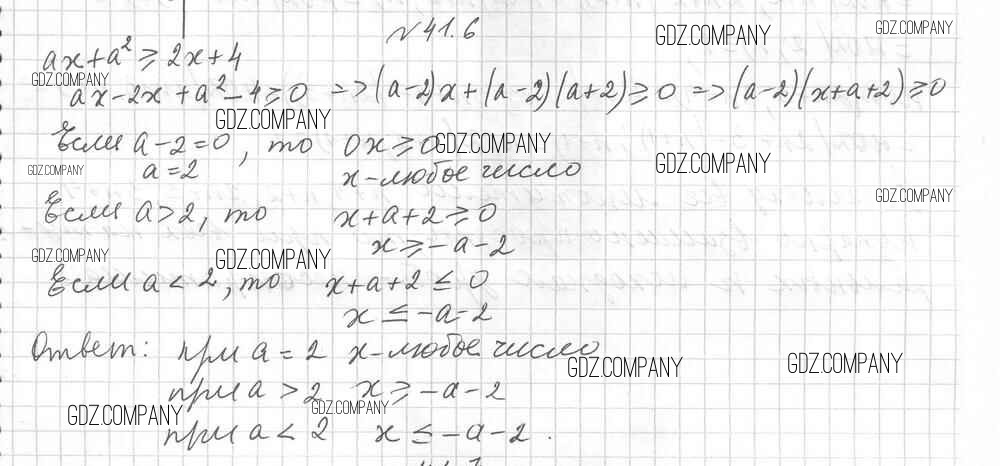 №41.6
GDZ.COMPANY GDZ.COMPANY
ax+a² ≥ 2x+4
GDZ.COMPANY
ax-2x+a²-4≥0 => (a-2)x+(a-2)(a+2)≥0 => (a-2)(x+a+2)≥0
GDZ.COMPANY
Если a-2=0, то 0x≥0 GDZ.COMPANY
GDZ.COMPANY a=2 x-любое число GDZ.COMPANY
GDZ.COMPANY
Если a>2, то x+a+2≥0
x≥-a-2
GDZ.COMPANY GDZ.COMPANY
Если a<2, то x+a+2≤0
x≤-a-2
Ответ: при a=2 x-любое число
GDZ.COMPANY GDZ.COMPANY
при a>2 x≥-a-2
GDZ.COMPANY GDZ.COMPANY
при a<2 x≤-a-2.